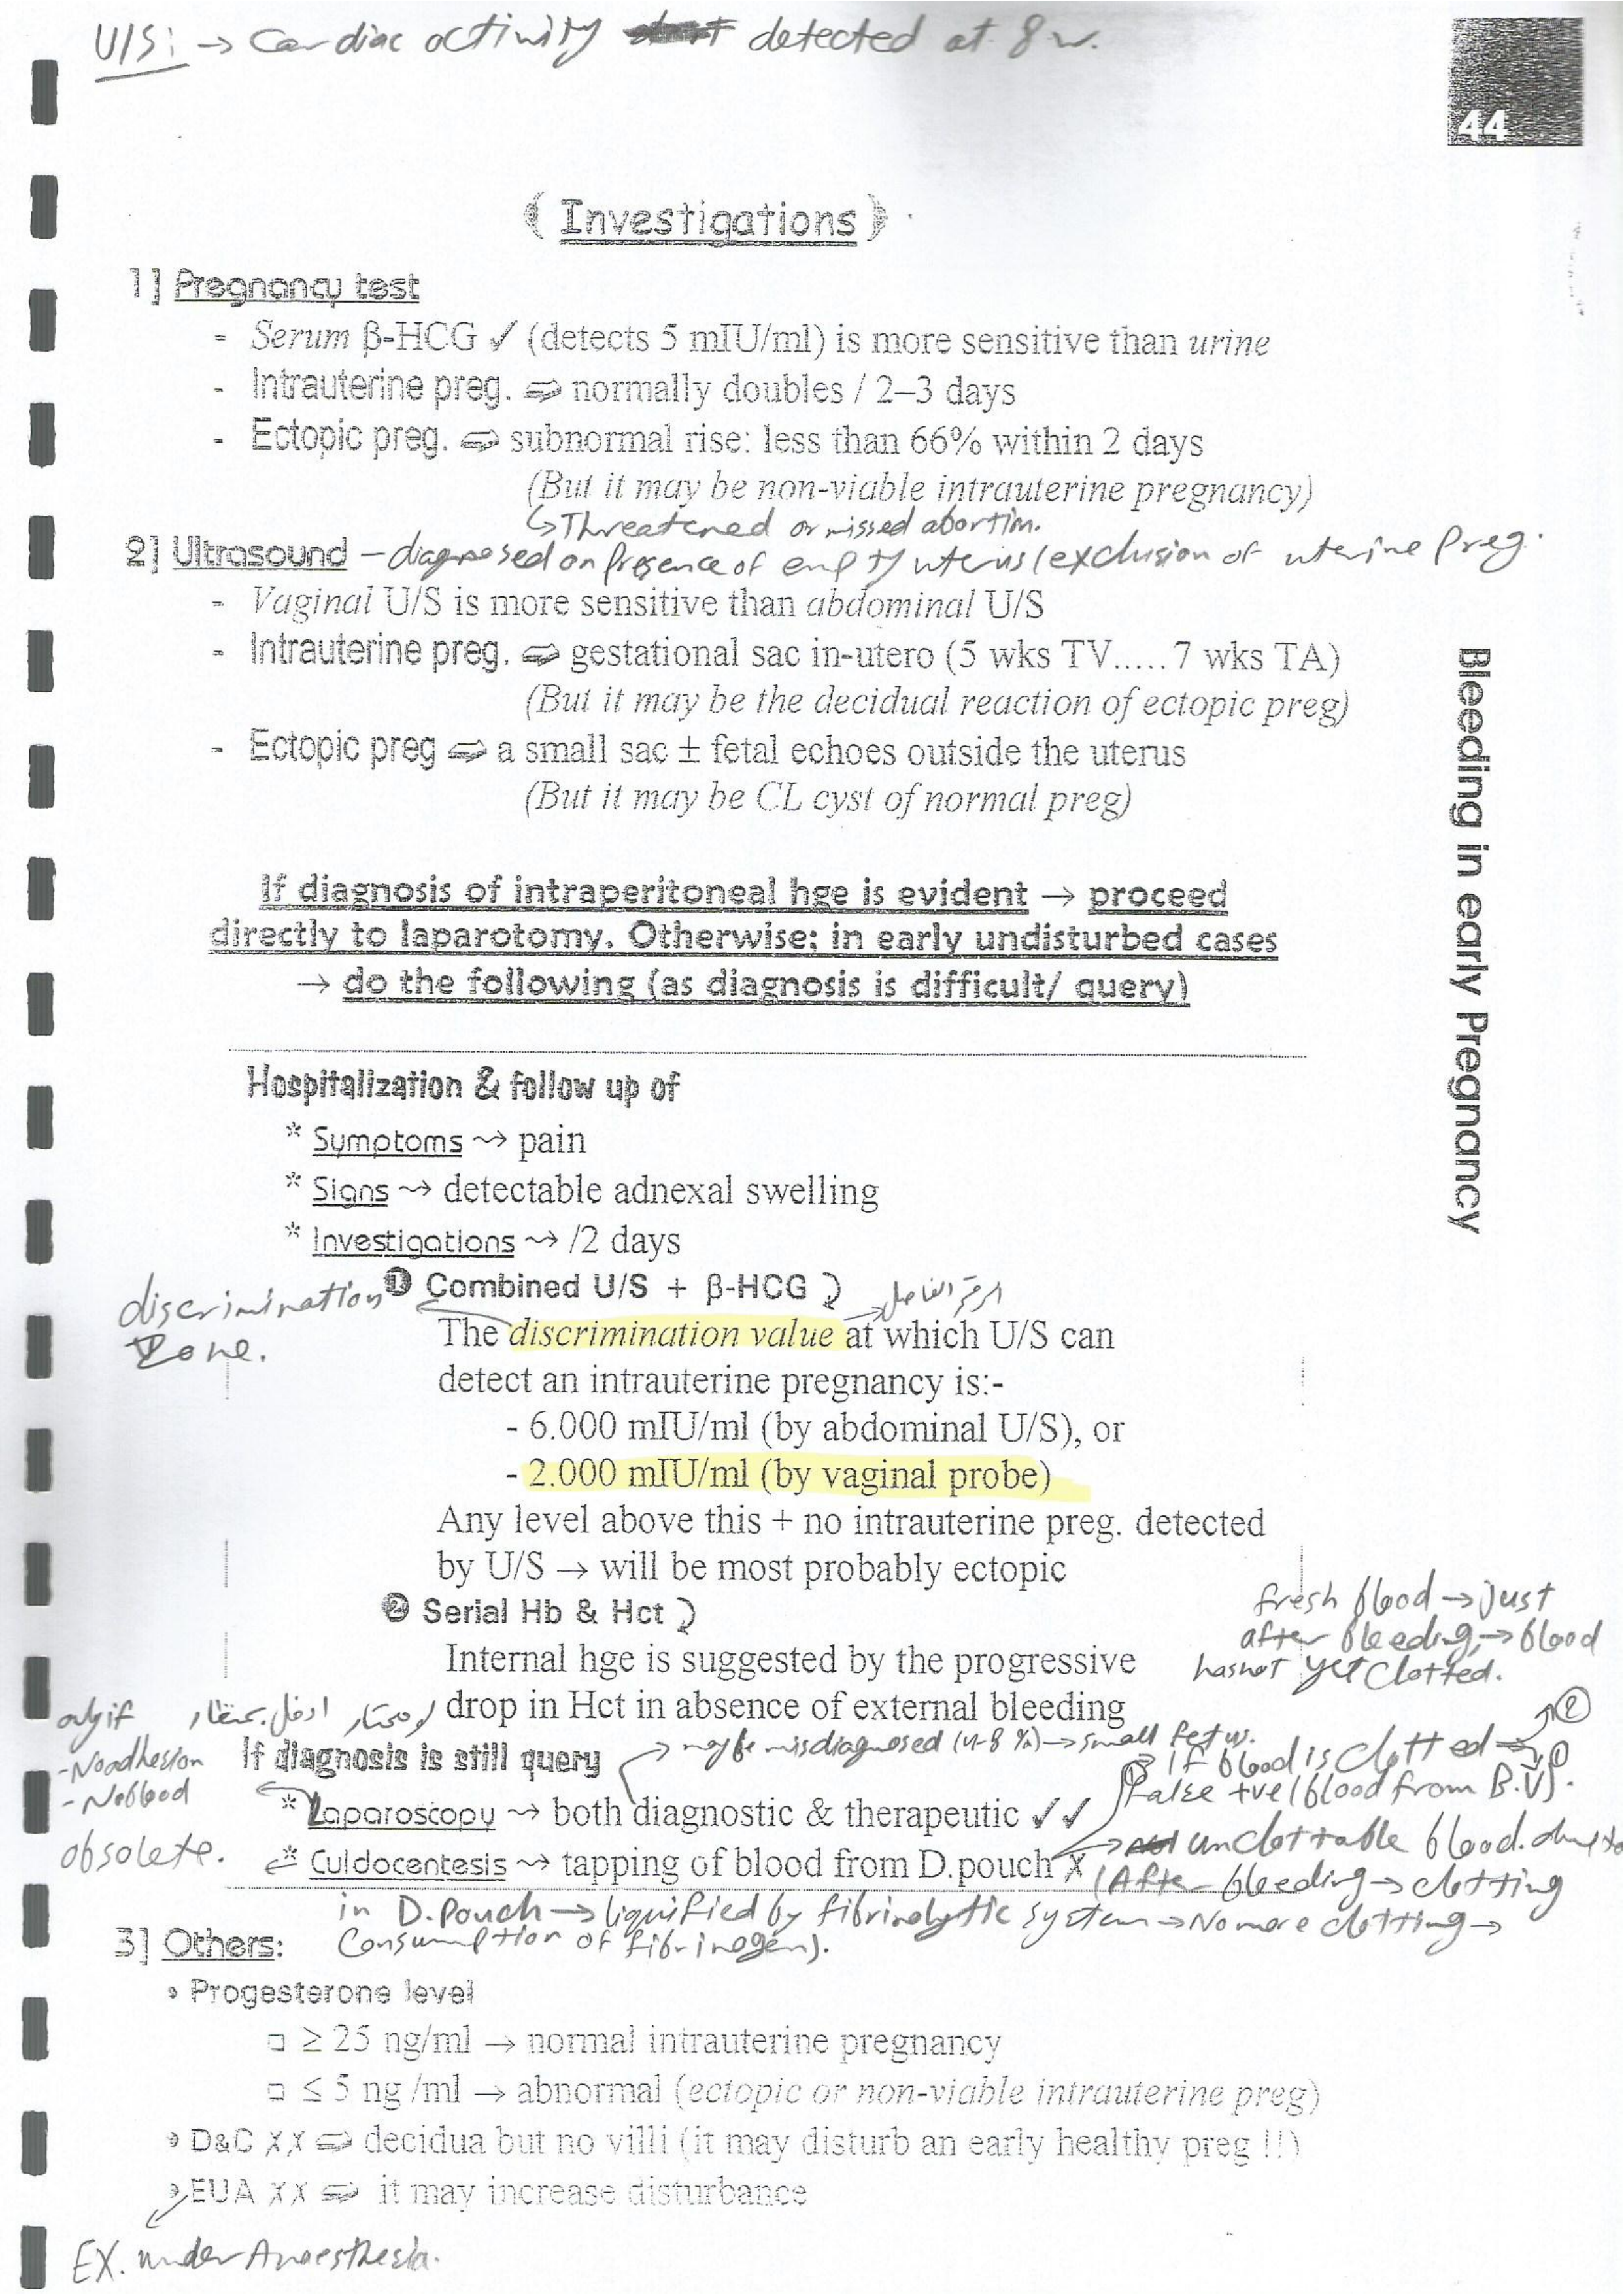 U/S: → Cardiac activity detected at 8 w.
44
Investigations
1] Pregnancy test
- Serum β-HCG ✓ (detects 5 mIU/ml) is more sensitive than urine
- Intrauterine preg. ⇨ normally doubles / 2–3 days
- Ectopic preg. ⇨ subnormal rise: less than 66% within 2 days
(But it may be non-viable intrauterine pregnancy)
↳ Threatened or missed abortion.
2] Ultrasound – diagnosed on presence of empty uterus (exclusion of uterine preg.
- Vaginal U/S is more sensitive than abdominal U/S
- Intrauterine preg. ⇨ gestational sac in-utero (5 wks TV.....7 wks TA)
(But it may be the decidual reaction of ectopic preg)
- Ectopic preg ⇨ a small sac ± fetal echoes outside the uterus
(But it may be CL cyst of normal preg)
If diagnosis of intraperitoneal hge is evident → proceed
directly to laparotomy. Otherwise: in early undisturbed cases
→ do the following (as diagnosis is difficult/ query)
Bleeding in early Pregnancy
Hospitalization & follow up of
* Symptoms ⤳ pain
* Signs ⤳ detectable adnexal swelling
* Investigations ⤳ /2 days
❶ Combined U/S + β-HCG
الرقم الفاصل
discrimination
Zone.
The discrimination value at which U/S can
detect an intrauterine pregnancy is:-
- 6.000 mIU/ml (by abdominal U/S), or
- 2.000 mIU/ml (by vaginal probe)
Any level above this + no intrauterine preg. detected
by U/S → will be most probably ectopic
❷ Serial Hb & Hct
Internal hge is suggested by the progressive
drop in Hct in absence of external bleeding
fresh blood → just
after bleeding → blood
has not yet clotted.
only if
- No adhesion
- No blood
If diagnosis is still query
→ may be misdiagnosed (4-8 %) → small fetus.
② If blood is clotted → ②
① False +ve (blood from B.V).
* Laparoscopy ⤳ both diagnostic & therapeutic ✓✓
obsolete.
* Culdocentesis ⤳ tapping of blood from D.pouch ✗
→ unclottable blood. due to
(After bleeding → clotting
in D.Pouch → liquified by fibrinolytic system → No more clotting →
Consumption of fibrinogen).
3] Others:
• Progesterone level
□ ≥ 25 ng/ml → normal intrauterine pregnancy
□ ≤ 5 ng /ml → abnormal (ectopic or non-viable intrauterine preg)
• D&C ✗✗ ⇨ decidua but no villi (it may disturb an early healthy preg !!)
• EUA ✗✗ ⇨ it may increase disturbance
EX. under Anaesthesia.